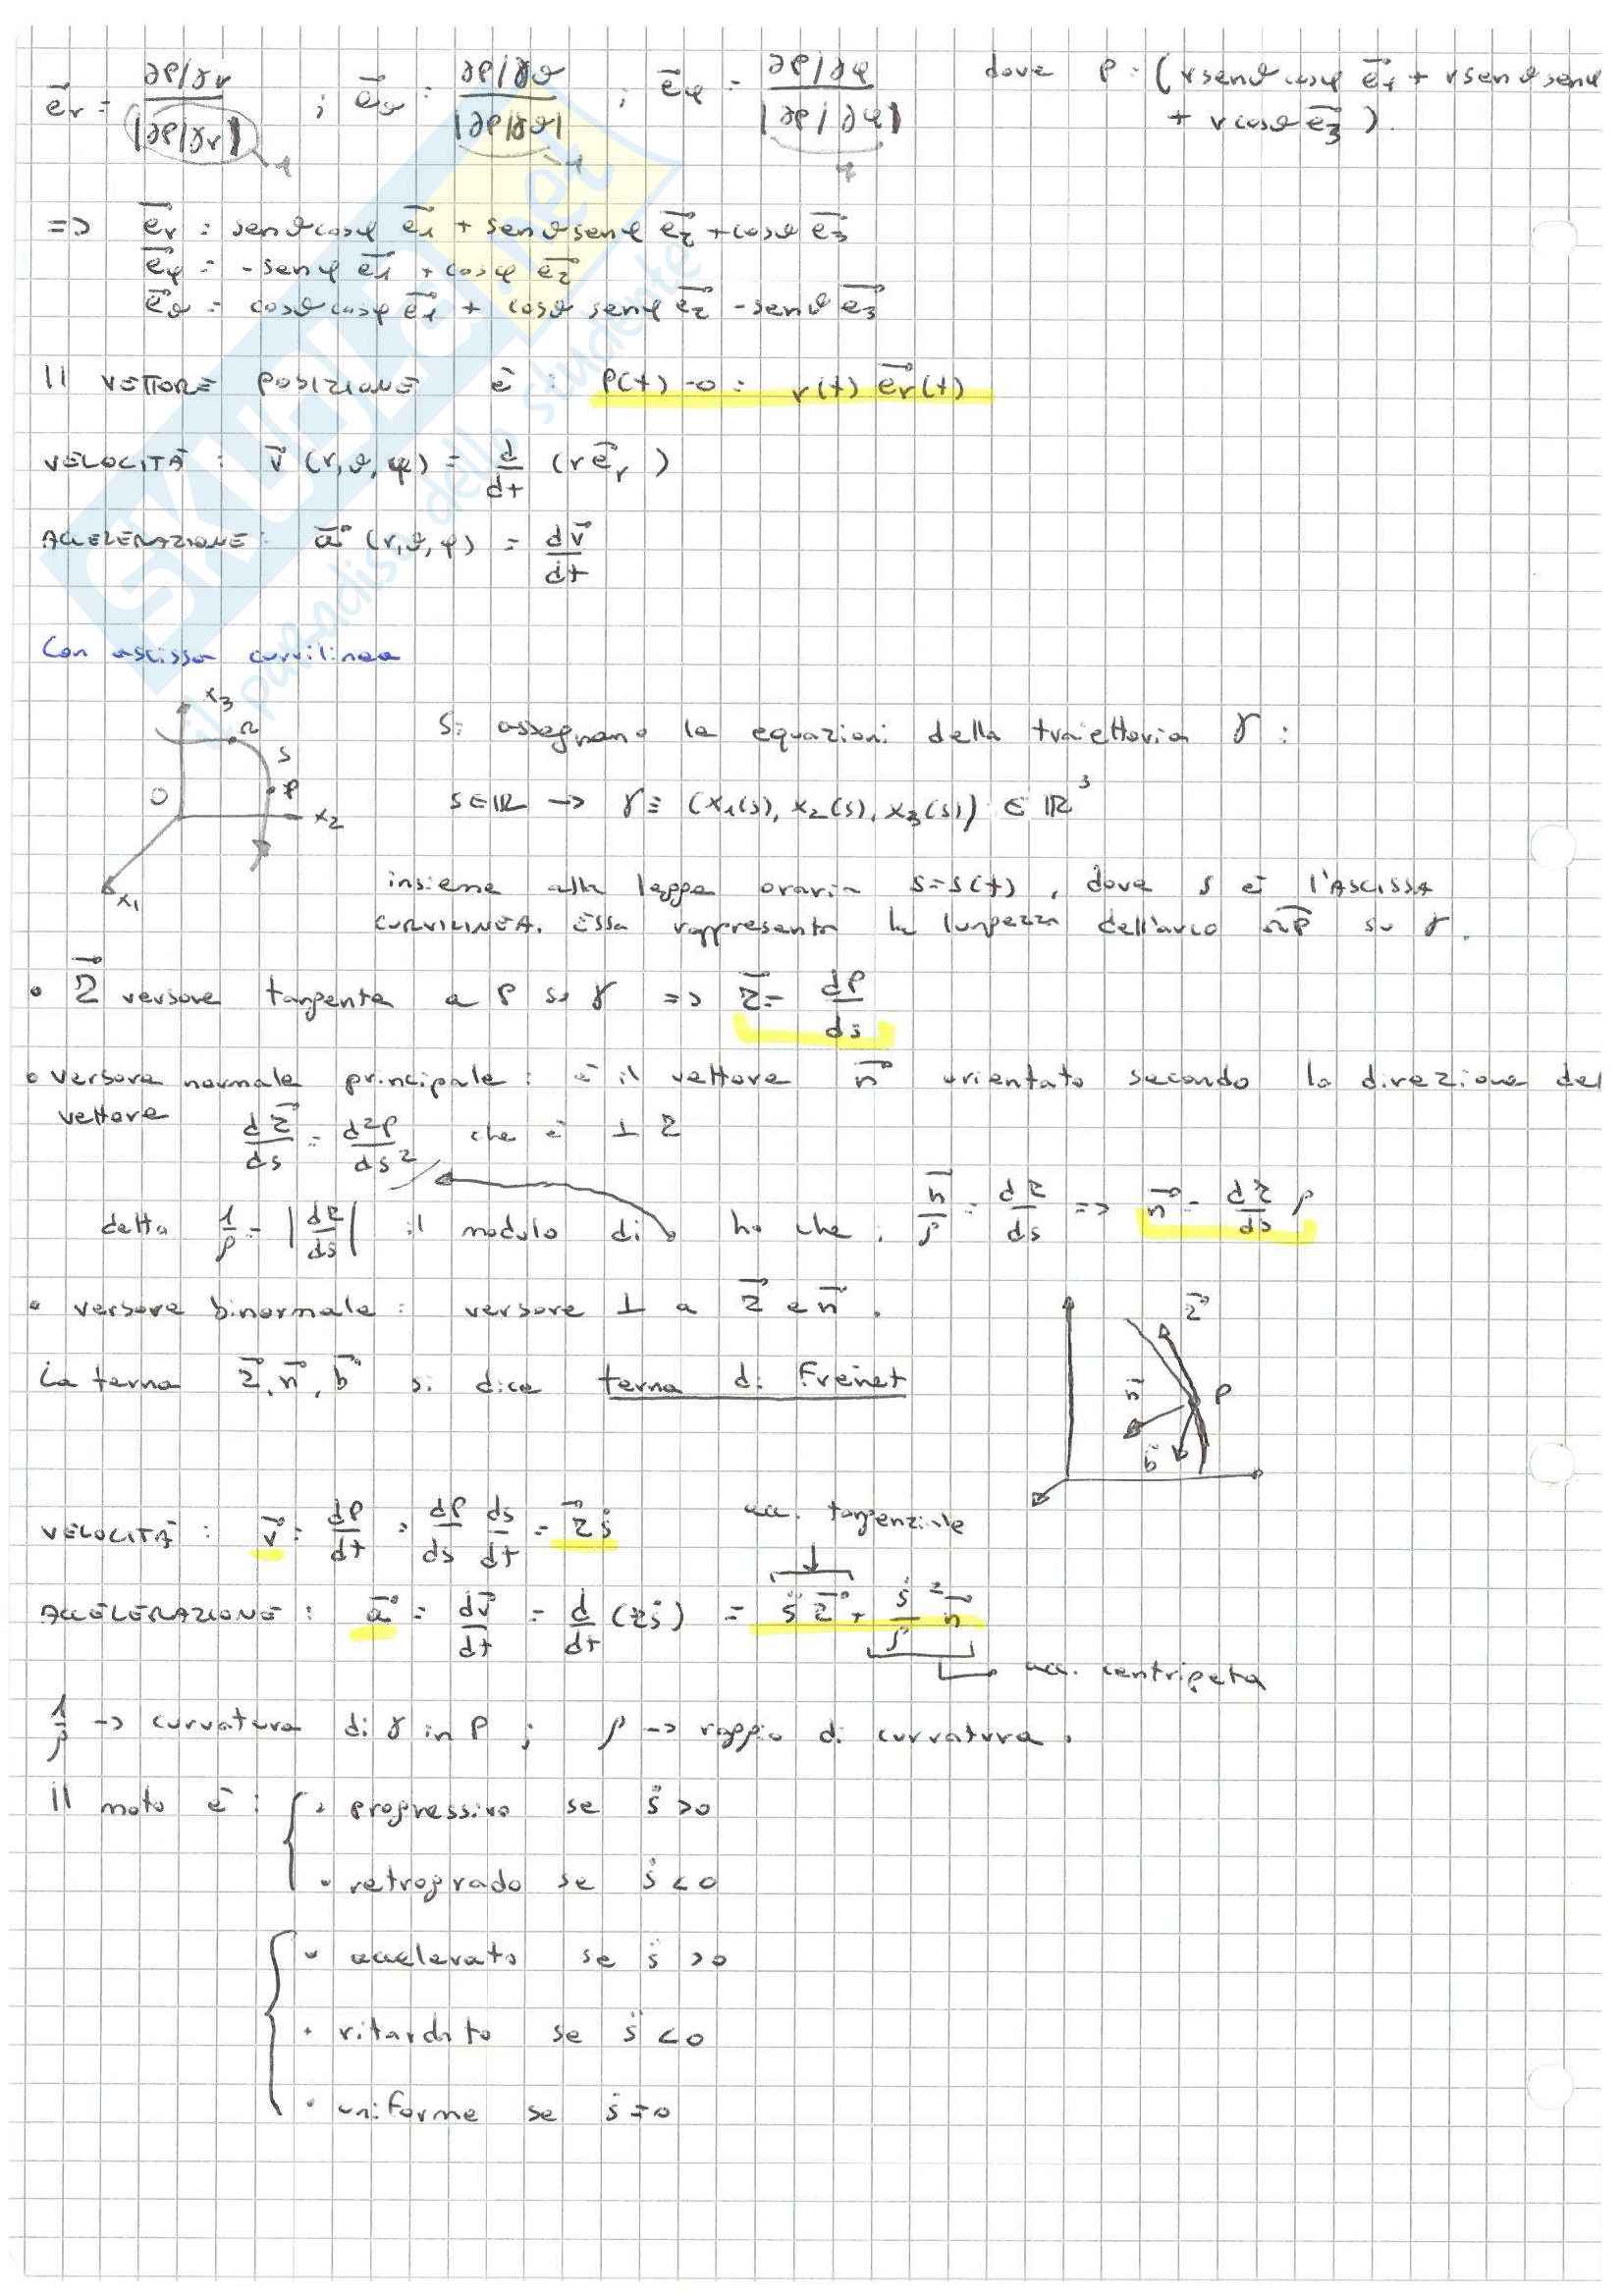 e⃗r = ∂P/∂r / |∂P/∂r| ; e⃗ϑ = ∂P/∂ϑ / |∂P/∂ϑ| ; e⃗φ = ∂P/∂φ / |∂P/∂φ| dove P = (r senϑ cosφ e⃗1 + r senϑ senφ
+ r cosϑ e⃗3).
=> e⃗r = senϑ cosφ e⃗1 + senϑ senφ e⃗2 + cosϑ e⃗3
e⃗φ = -senφ e⃗1 + cosφ e⃗2
e⃗ϑ = cosϑ cosφ e⃗1 + cosϑ senφ e⃗2 - senϑ e⃗3
Il VETTORE POSIZIONE è: P(t)-O = r(t) e⃗r(t)
VELOCITÀ: v⃗(r,ϑ,φ) = d/dt (r e⃗r)
ACCELERAZIONE: a⃗(r,ϑ,φ) = dv⃗/dt
Con ascissa curvilinea
x3
Ω
S
P
O
x2
x1
Si assegnano le equazioni della traiettoria γ:
S∈ℝ -> γ ≡ (x1(s), x2(s), x3(s)) ∈ ℝ³
insieme alla legge oraria s=s(t), dove s è l'ASCISSA
CURVILINEA. Essa rappresenta la lunghezza dell'arco ΩP su γ.
• τ⃗ versore tangente a P su γ => τ⃗ = dP/ds
• versore normale principale: è il vettore n⃗ orientato secondo la direzione del
vettore dτ⃗/ds = d²P/ds² che è ⊥ τ
detto 1/ρ = |dτ/ds| il modulo di ho che: n⃗/ρ = dτ/ds => n⃗ = dτ⃗/ds ρ
• versore binormale: versore ⊥ a τ⃗ e n⃗.
La terna τ⃗, n⃗, b⃗ si dice terna di Frenet
τ⃗
n⃗
P
b⃗
VELOCITÀ: v⃗ = dP/dt = dP/ds ds/dt = τ⃗ ṡ
acc. tangenziale
ACCELERAZIONE: a⃗ = dv⃗/dt = d/dt (τṡ) = s̈ τ⃗ + ṡ²/ρ n⃗
acc. centripeta
1/ρ -> curvatura di γ in P; ρ -> raggio di curvatura.
Il moto è: • progressivo se ṡ >0
• retrogrado se ṡ <0
• accelerato se s̈ >0
• ritardato se s̈ <0
• uniforme se s̈ =0